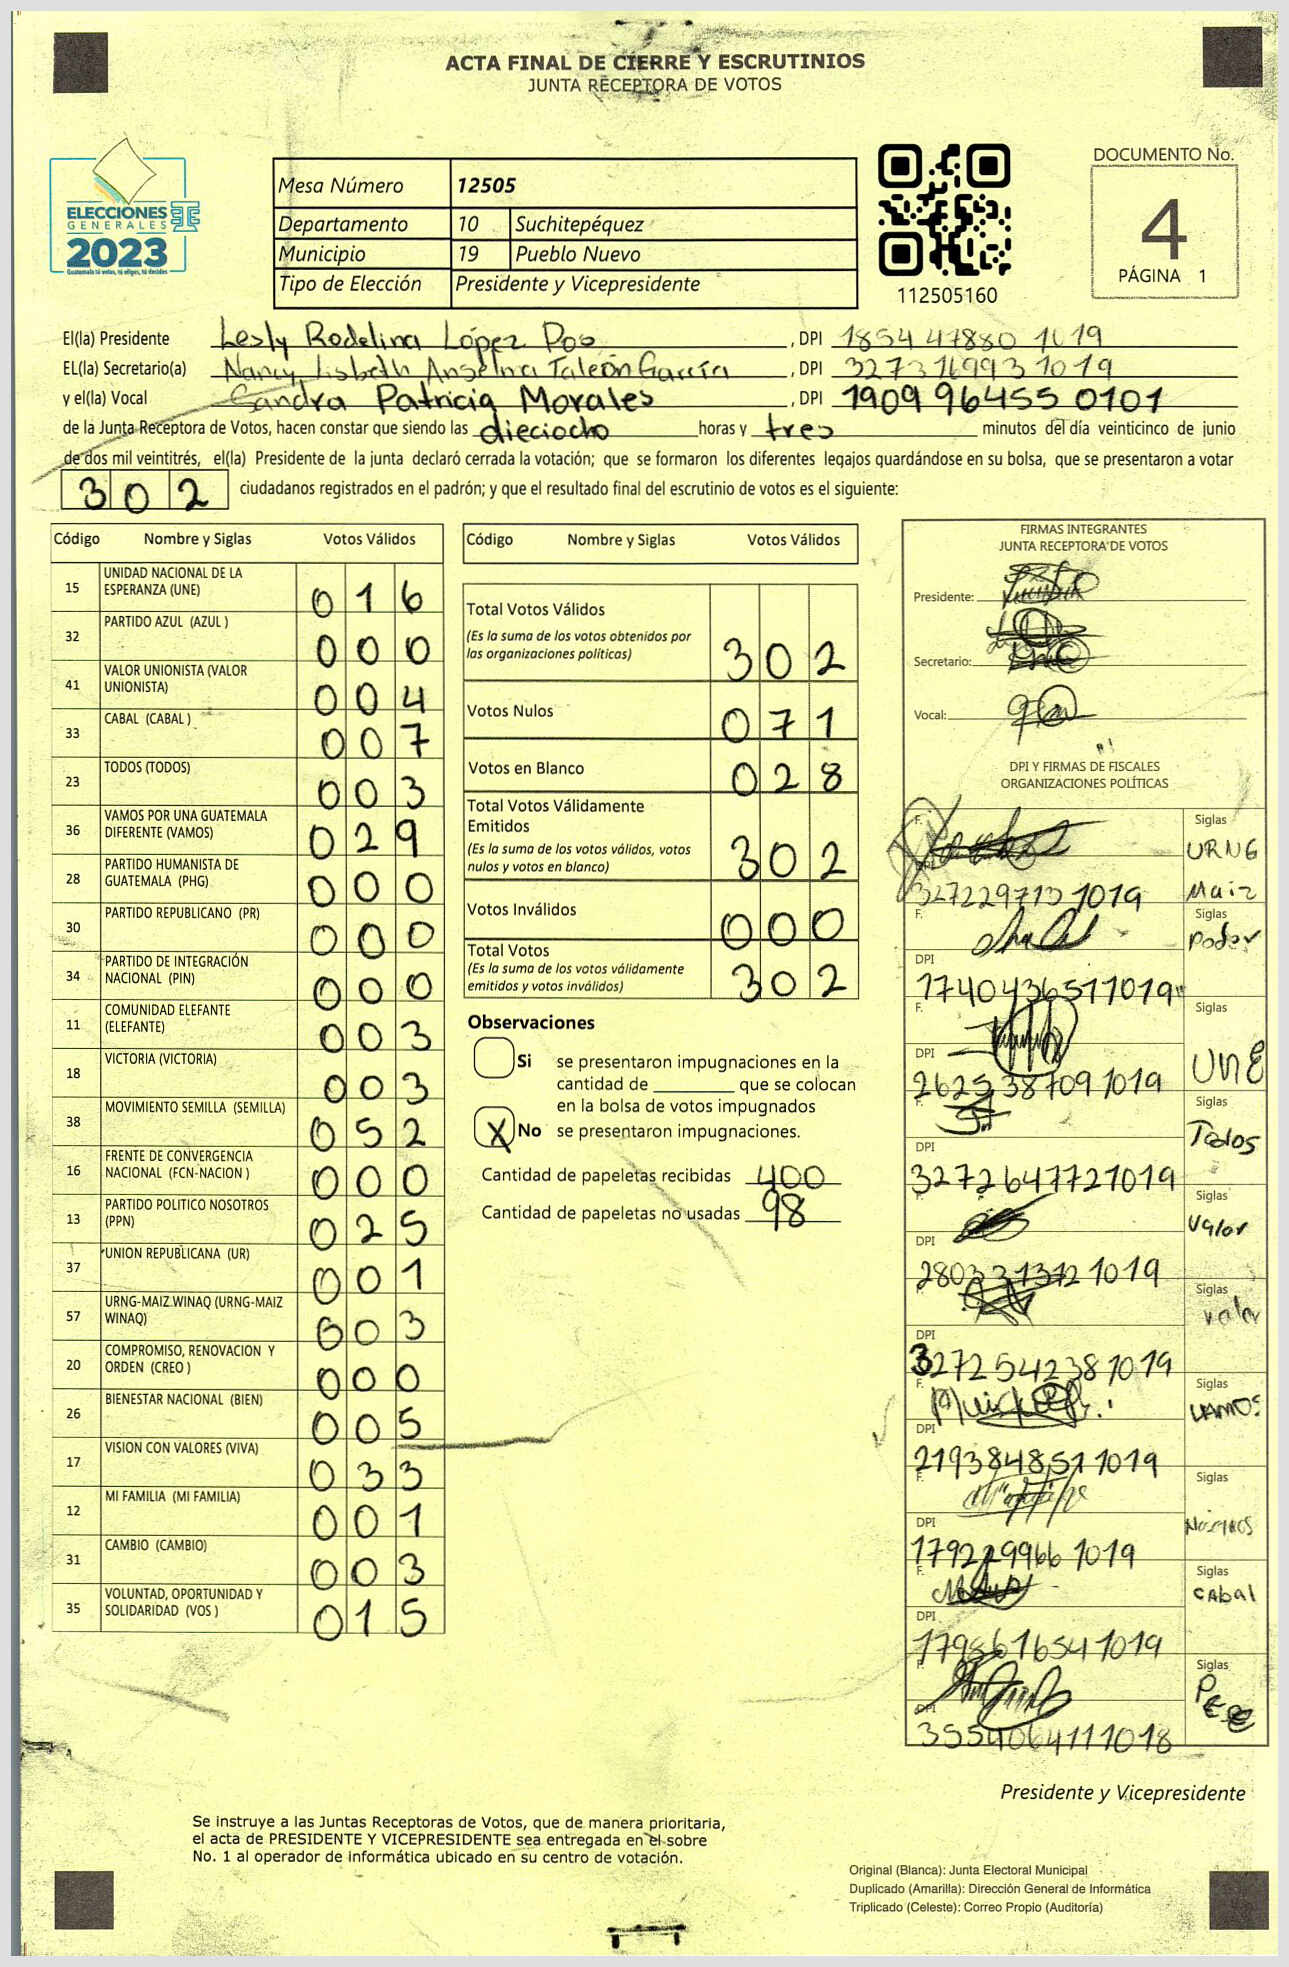 ACTA FINAL DE CIERRE Y ESCRUTINIOS
JUNTA RECEPTORA DE VOTOS
ELECCIONES
GENERALES
2023
Guatemala tú votas, tú eliges, tú decides
Mesa Número 12505
Departamento 10 Suchitepéquez
Municipio 19 Pueblo Nuevo
Tipo de Elección Presidente y Vicepresidente
112505160
DOCUMENTO No.
4
PÁGINA 1
El(la) Presidente Lesly Rodelina López Pos, DPI 1854 47880 1019
EL(la) Secretario(a) Nancy Lisbeth Anselma Taleón García, DPI 3273 16993 1019
y el(la) Vocal Sandra Patricia Morales, DPI 1909 96455 0101
de la Junta Receptora de Votos, hacen constar que siendo las dieciocho horas y tres minutos del día veinticinco de junio
de dos mil veintitrés, el(la) Presidente de la junta declaró cerrada la votación; que se formaron los diferentes legajos guardándose en su bolsa, que se presentaron a votar
302 ciudadanos registrados en el padrón; y que el resultado final del escrutinio de votos es el siguiente:
Código Nombre y Siglas Votos Válidos
15 UNIDAD NACIONAL DE LA ESPERANZA (UNE) 016
32 PARTIDO AZUL (AZUL ) 000
41 VALOR UNIONISTA (VALOR UNIONISTA) 004
33 CABAL (CABAL ) 007
23 TODOS (TODOS) 003
36 VAMOS POR UNA GUATEMALA DIFERENTE (VAMOS) 029
28 PARTIDO HUMANISTA DE GUATEMALA (PHG) 000
30 PARTIDO REPUBLICANO (PR) 000
34 PARTIDO DE INTEGRACIÓN NACIONAL (PIN) 000
11 COMUNIDAD ELEFANTE (ELEFANTE) 003
18 VICTORIA (VICTORIA) 003
38 MOVIMIENTO SEMILLA (SEMILLA) 052
16 FRENTE DE CONVERGENCIA NACIONAL (FCN-NACION ) 000
13 PARTIDO POLITICO NOSOTROS (PPN) 025
37 UNION REPUBLICANA (UR) 001
57 URNG-MAIZ WINAQ (URNG-MAIZ WINAQ) 003
20 COMPROMISO, RENOVACION Y ORDEN (CREO ) 000
26 BIENESTAR NACIONAL (BIEN) 005
17 VISION CON VALORES (VIVA) 033
12 MI FAMILIA (MI FAMILIA) 001
31 CAMBIO (CAMBIO) 003
35 VOLUNTAD, OPORTUNIDAD Y SOLIDARIDAD (VOS ) 015
Código Nombre y Siglas Votos Válidos
Total Votos Válidos
(Es la suma de los votos obtenidos por
las organizaciones políticas) 302
Votos Nulos 071
Votos en Blanco 028
Total Votos Válidamente
Emitidos
(Es la suma de los votos válidos, votos
nulos y votos en blanco) 302
Votos Inválidos 000
Total Votos
(Es la suma de los votos válidamente
emitidos y votos inválidos) 302
Observaciones
Si se presentaron impugnaciones en la
cantidad de ________ que se colocan
en la bolsa de votos impugnados
X No se presentaron impugnaciones.
Cantidad de papeletas recibidas 400
Cantidad de papeletas no usadas 98
FIRMAS INTEGRANTES
JUNTA RECEPTORA DE VOTOS
Presidente:
Secretario:
Vocal:
DPI Y FIRMAS DE FISCALES
ORGANIZACIONES POLÍTICAS
F. Siglas URNG Maiz
DPI 327229713 1019
F. Siglas Poder
DPI 1740436511019
F. Siglas UNE
DPI 2625 38709 1019
F. Siglas Todos
DPI 3272647721019
F. Siglas Valor
DPI 280331312 1019
F. Siglas Valor
DPI 3272542381019
F. Siglas VAMOS
DPI 2193848511019
F. Siglas Nosotros
DPI 179229966 1019
F. Siglas CAbal
DPI 1798616541019
F. Siglas
DPI 3554064111018
Presidente y Vicepresidente
Se instruye a las Juntas Receptoras de Votos, que de manera prioritaria,
el acta de PRESIDENTE Y VICEPRESIDENTE sea entregada en el sobre
No. 1 al operador de informática ubicado en su centro de votación.
Original (Blanca): Junta Electoral Municipal
Duplicado (Amarilla): Dirección General de Informática
Triplicado (Celeste): Correo Propio (Auditoría)